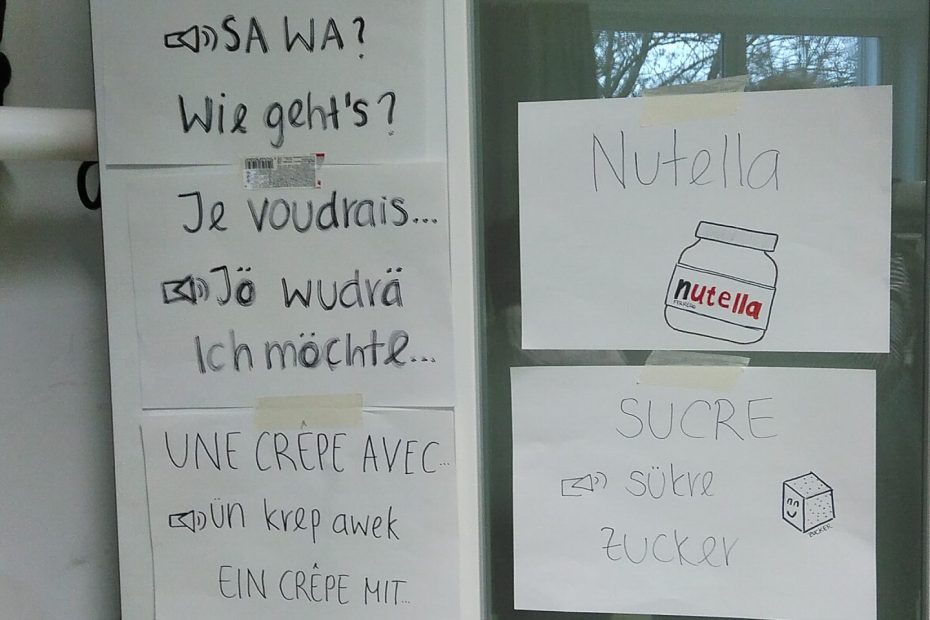 SA WA?
Wie geht's?
Je voudrais...
Jö wudrä
Ich möchte...
UNE CRÊPE AVEC...
ün krep awek
EIN CRÊPE MIT...
Nutella
nutella
FERRERO
SUCRE
sükre
Zucker
ZUCKER